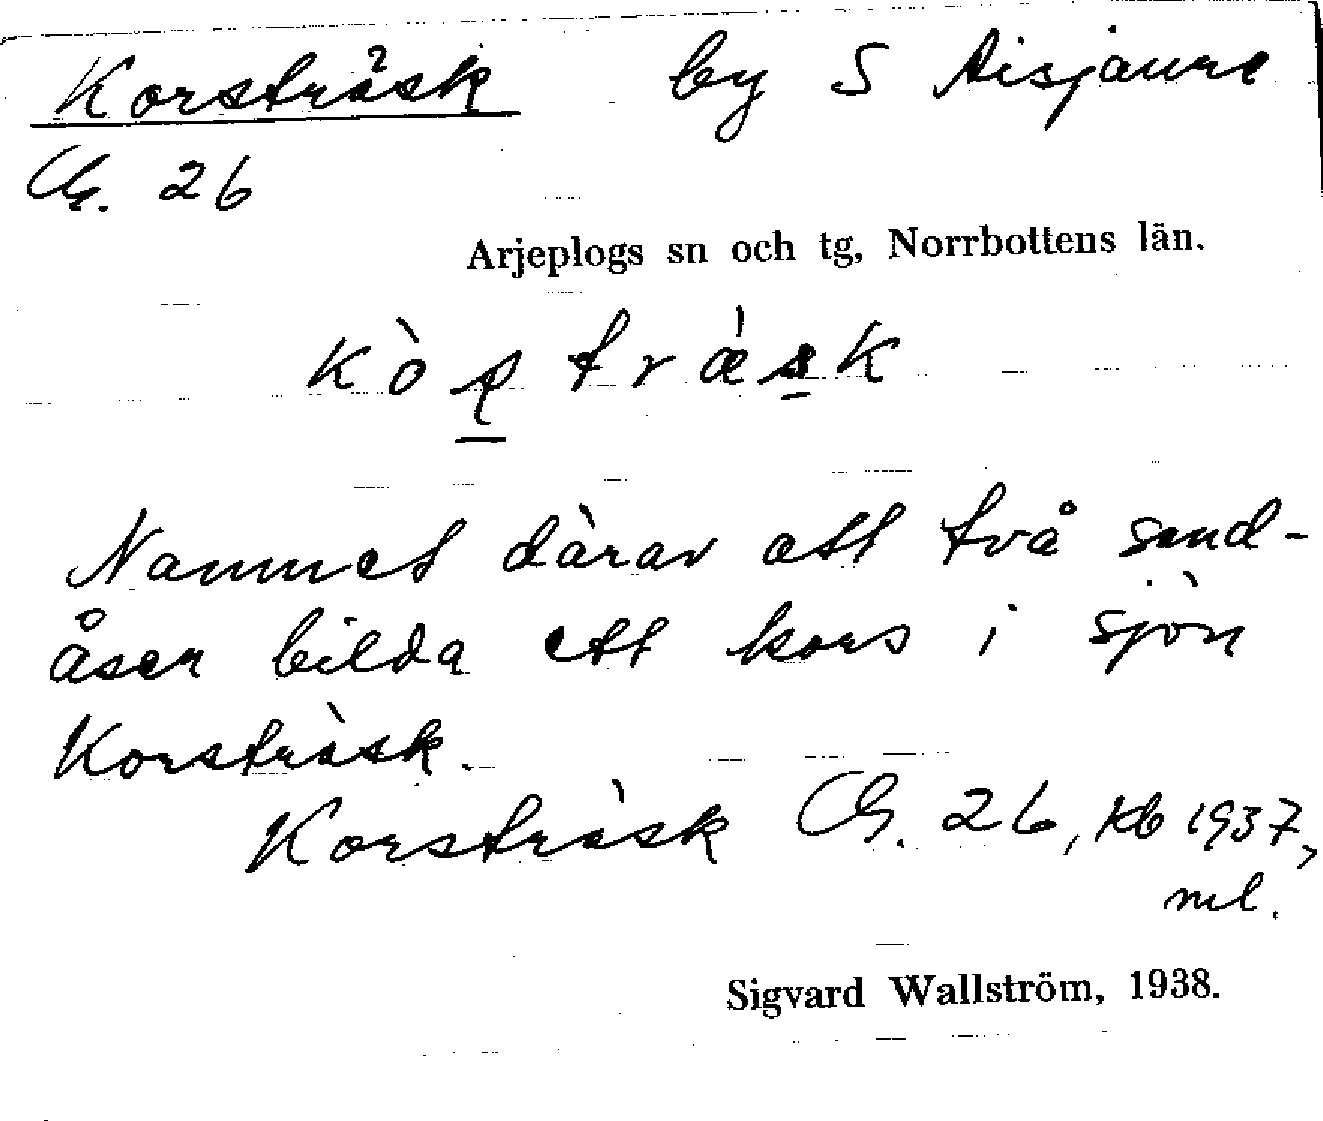 Korsträsk by S Aisjaure
Ch. 26
Arjeplogs sn och tg, Norrbottens län.
Nammet därav att två sand-
åser bilda ett kors i sjön
Korsträsk.
Korsträsk Ch. 26, Kb 1937,
ml.
Sigvard Wallström, 1938.